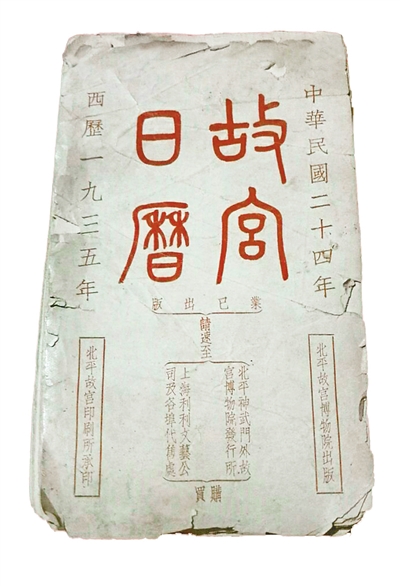 中華民國二十四年
故宮
日曆
西歷一九三五年
業已出版
請逕至
北平神武門外故
宮博物院發行所
上海利利文藝公
司及各埠代售處
購買
北平故宮博物院出版
北平故宮印刷所承印